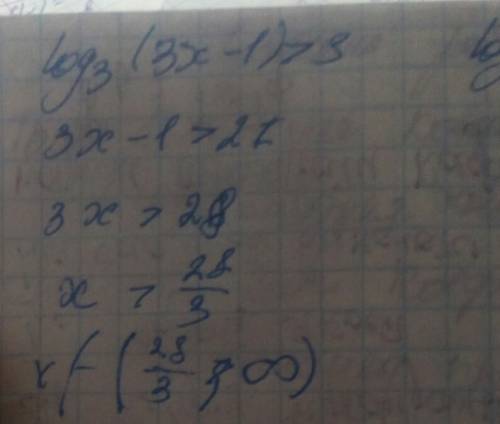 log₃ (3x-1) > 3
3x - 1 > 27
3x > 28
x > 28/3
x ∈ (28/3; ∞)